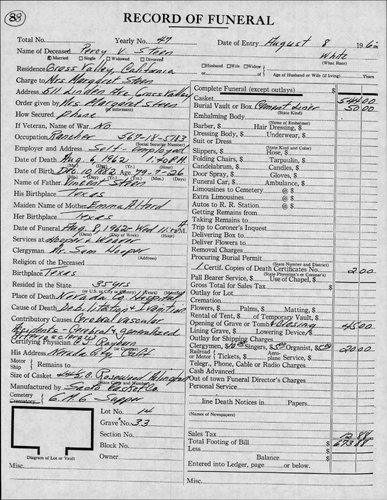 88
RECORD OF FUNERAL
Total No. Yearly No. 47 Date of Entry August 8 196
Name of Deceased Percy V. Steen White
Married Single Widowed Divorced (What Race)
Residence Grass Valley, California
Husband Wife Widow
Age of Husband or Wife (if living) Years
Charge to Mrs Margaret Steen
Address 611 Linden Ave Grass Valley
Order given by Mrs Margaret Steen
How Secured Phone
If Veteran, Name of War No
Occupation Rancher 567-18-5783
(Social Security Number)
Employer and Address Self-Employed
Date of Death Aug 6, 1962 1:40 P.M.
Date of Birth Dec. 10, 1882 Age 79-7-26
(Yrs.) (Mos.) (Days)
Name of Father Vincent Steen
His Birthplace Texas
Maiden Name of Mother Emma Alford
Her Birthplace Texas
Date of Funeral Aug 8, 1962-Wed
(Date) (Day of Week) (Hour)
Services at Hooper & Weaver
Clergyman Mr. Sam Hooper
Religion of the Deceased
Birthplace Texas
Resided in the State 35 yrs
(or U.S. or City or County)
Place of Death Nevada Co. Hospital
Cause of Death
Contributory Causes Cerebral vascular
accidents - Cerebral & generalized
Certifying Physician
His Address Nevada City Calif
Motor
Ship
Remains
Size of Casket
(State City and Name)
Manufactured by
Cemetery
Crematory
Lot No. 14
Grave No. 33
Section No.
Block No.
Owner
Diagram of Lot or Vault
Misc.
Complete Funeral (except outlays) $
Casket 544.00
Burial Vault or Box Cement Liner 50.00
(State Kind)
Embalming Body
(Name of Embalmer)
Barber, $ Hair Dressing, $
Dressing Body, $ Underwear, $
Suit or Dress
(State Kind and Color)
Slippers, $ Hose, $
Folding Chairs, $ Tarpaulin, $
Candelabrum, $ Candles, $
Door Spray, $ Gloves, $
Funeral Car, $ Ambulance, $
Limousines to Cemetery @ $
Extra Limousines @ $
Autos to R. R. Station @ $
Getting Remains from
Taking Remains to
Trip to Coroner's Inquest
Delivering Box to
Deliver Flowers to
Removal Charges
Procuring Burial Permit
(State Number and District)
1 Certif. Copies of Death Certificates No. 2.00
(State Person's or Company's)
Pall Bearer Service, $ Use of Chapel, $
Gross Total for Sales Tax $
Outlay for Lot
Cremation
Flowers, $ Palms, $ Matting, $
Rental of Tent, $ of Temporary Vault, $
Opening of Grave or Tomb & Closing 45.00
Lining Grave, $ Lowering Device, $
Outlay for Shipping Charges
Clergymen, $ Singers, $ Organist, $ 20.00
Railroad or Motor Tickets, $ Aero-plane Service, $
Telegr., Phone, Cable or Radio Charges
Cash Advanced
Out of town Funeral Director's Charges
Personal Service
line Death Notices in Papers
(Names of Newspapers)
Sales Tax $ 12.88
Total Footing of Bill $ 673.88
Less $
Balance $
Entered into Ledger, page or below.
Misc.